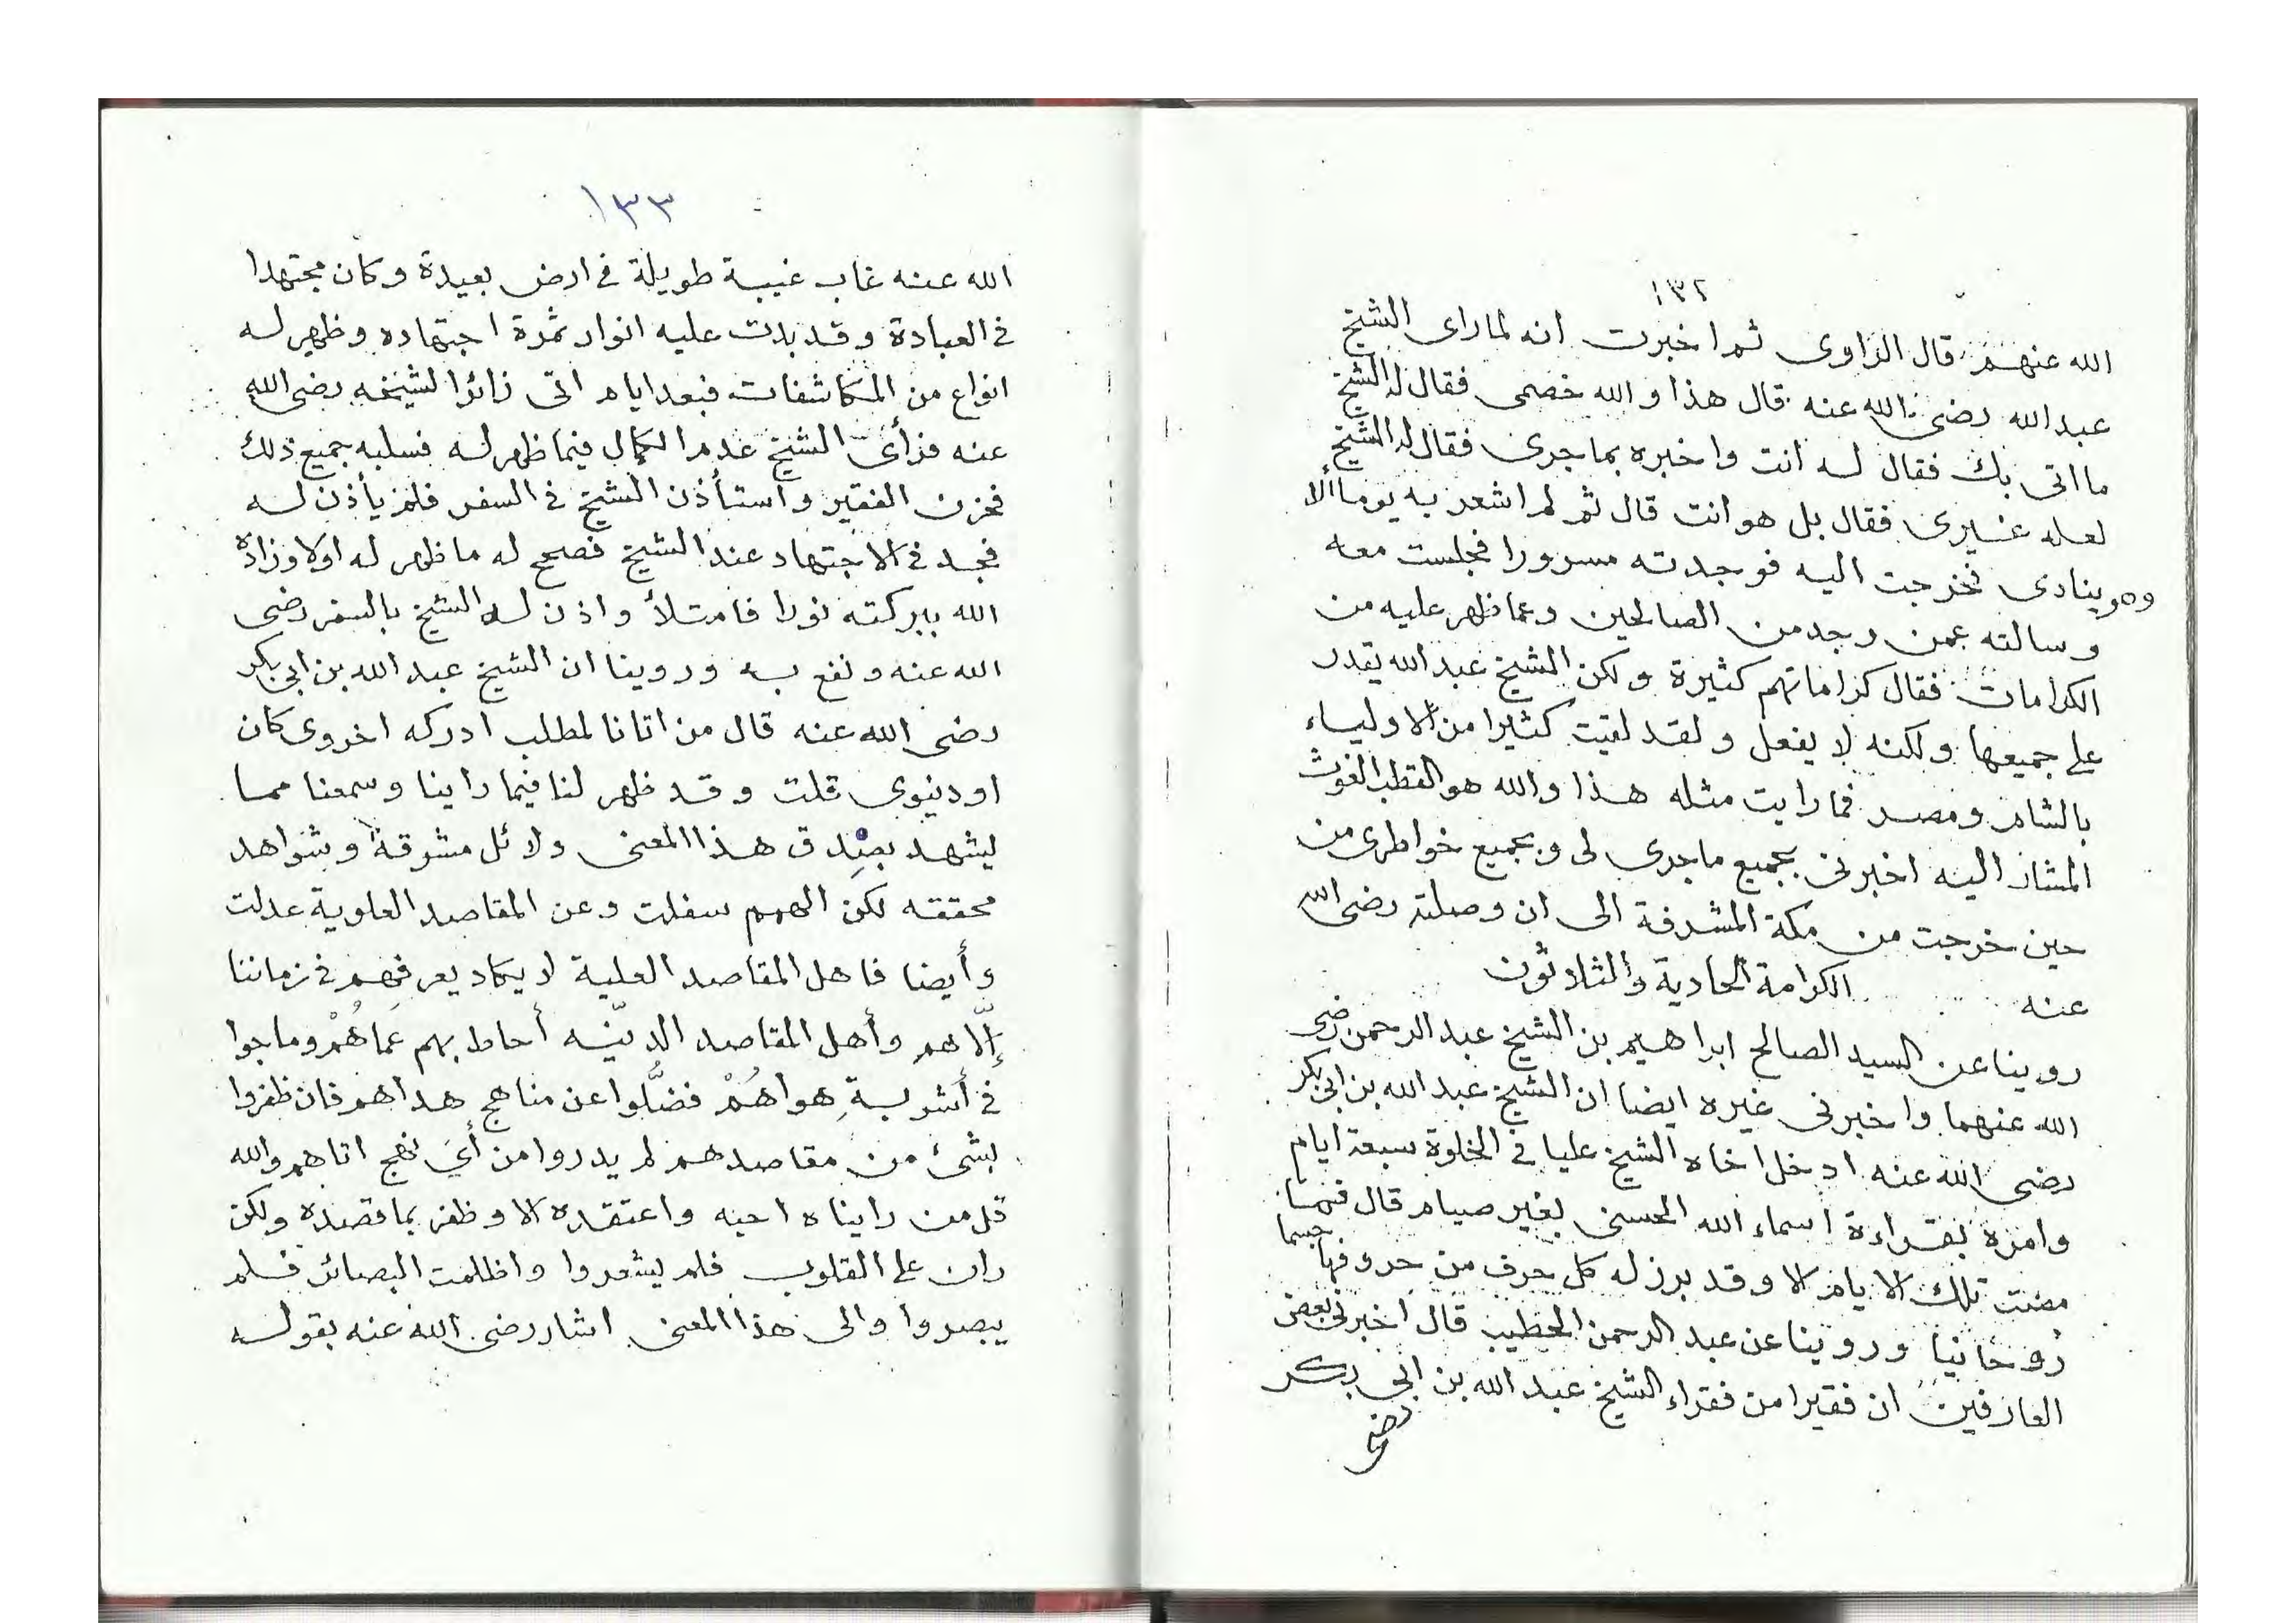 ١٣٢
الله عنهم قال الراوى ثم اخبرت انه لما راى الشيخ
عبد الله رضى الله عنه قال هذا والله خصمى فقال له الشيخ
ما اتى بك فقال له انت واخبره بما جرى فقال له الشيخ
لعله غيرى فقال بل هو انت قال ثم لم اشعر به يوما الا
وهو ينادى فخرجت اليه فوجدته مسرورا فجلست معه
وسالته عمن وجد من الصالحين وعما ظهر عليه من
الكرامات فقال كراماتهم كثيرة ولكن الشيخ عبد الله يقدر
على جميعها ولكنه لا يفعل ولقد لقيت كثيرا من الاولياء
بالشام ومصر فما رايت مثله هذا والله هو القطب الغوث
المشار اليه اخبرنى بجميع ما جرى لى وبجميع خواطرى من
حين خرجت من مكة المشرفة الى ان وصلته رضى الله
عنه الكرامة الحادية والثلاثون
روينا عن السيد الصالح ابراهيم بن الشيخ عبد الرحمن رضى
الله عنهما واخبرنى غيره ايضا ان الشيخ عبد الله بن ابى بكر
رضى الله عنه ادخل اخاه الشيخ عليا فى الخلوة سبعة ايام
وامره بقراءة اسماء الله الحسنى بغير صيام قال فما
مضت تلك الايام الا وقد برز له كل حرف من حروفها جسما
روحانيا وروينا عن عبد الرحمن الخطيب قال اخبرنى بعض
العارفين ان فقيرا من فقراء الشيخ عبد الله بن ابى بكر
رضى
١٣٣
الله عنه غاب غيبة طويلة فى ارض بعيدة وكان مجتهدا
فى العبادة وقد بدت عليه انوار ثمرة اجتهاده وظهر له
انواع من المكاشفات فبعد ايام اتى زائرا لشيخه رضى الله
عنه فرأى الشيخ عدم الكمال فيما ظهر له فسلبه جميع ذلك
فحزن الفقير واستأذن الشيخ فى السفر فلم يأذن له
فجد فى الاجتهاد عند الشيخ فصحح له ما ظهر له اولا وزاده
الله ببركته نورا فامتلأ واذن له الشيخ بالسفر رضى
الله عنه ونفع به وروينا ان الشيخ عبد الله بن ابى بكر
رضى الله عنه قال من اتانا لمطلب ادركه اخروى كان
او دنيوى قلت وقد ظهر لنا فيما راينا وسمعنا مما
يشهد بصدق هذا المعنى ودلائل مشرقة وشواهد
محققه لكن الهمم سفلت وعن المقاصد العلوية عدلت
وأيضا فاهل المقاصد العلية لا يكاد يعرفهم فى زماننا
إلّا هم وأهل المقاصد الدنيّه أحاط بهم عَماهُمْ وماجوا
فى أشوبةِ هواهُمْ فضَّلوا عن مناهج هداهم فان ظفروا
بشئ من مقاصدهم لم يدروا من أي نهج اتاهم والله
قل من رايناه احبه واعتقده الا وظفر بما قصده ولكن
ران على القلوب فلم يشعروا واظلمت البصائر فلم
يبصروا والى هذا المعنى اشار رضى الله عنه بقوله